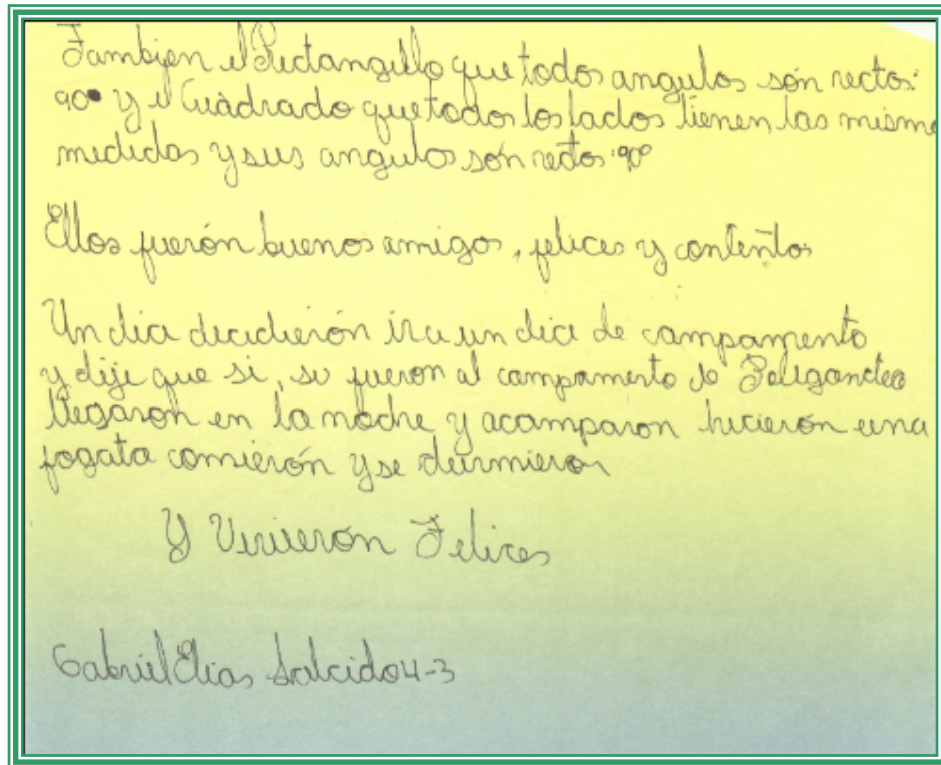 Tambien el Rectangullo que todos angulos són rectos:
90° y el Cuadrado que todos los lados tienen las misma
medidas y sus angulos són rectos:90°
Ellos fuerón buenos amigos, felices y contentos
Un dia decidierón ir a un dia de campamento
y dije que si, se fueron al campamento de
llegaron en la noche y acamparon hicierón una
fogata comierón y se durmieron
Y Vivierón Felices
Gabriel Elias Salcido 4-3